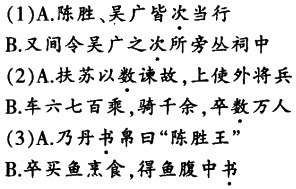 (1)A.陈胜、吴广皆次当行
B.又间令吴广之次所旁丛祠中
(2)A.扶苏以数谏故,上使外将兵
B.车六七百乘,骑千余,卒数万人
(3)A.乃丹书帛曰“陈胜王”
B.卒买鱼烹食,得鱼腹中书